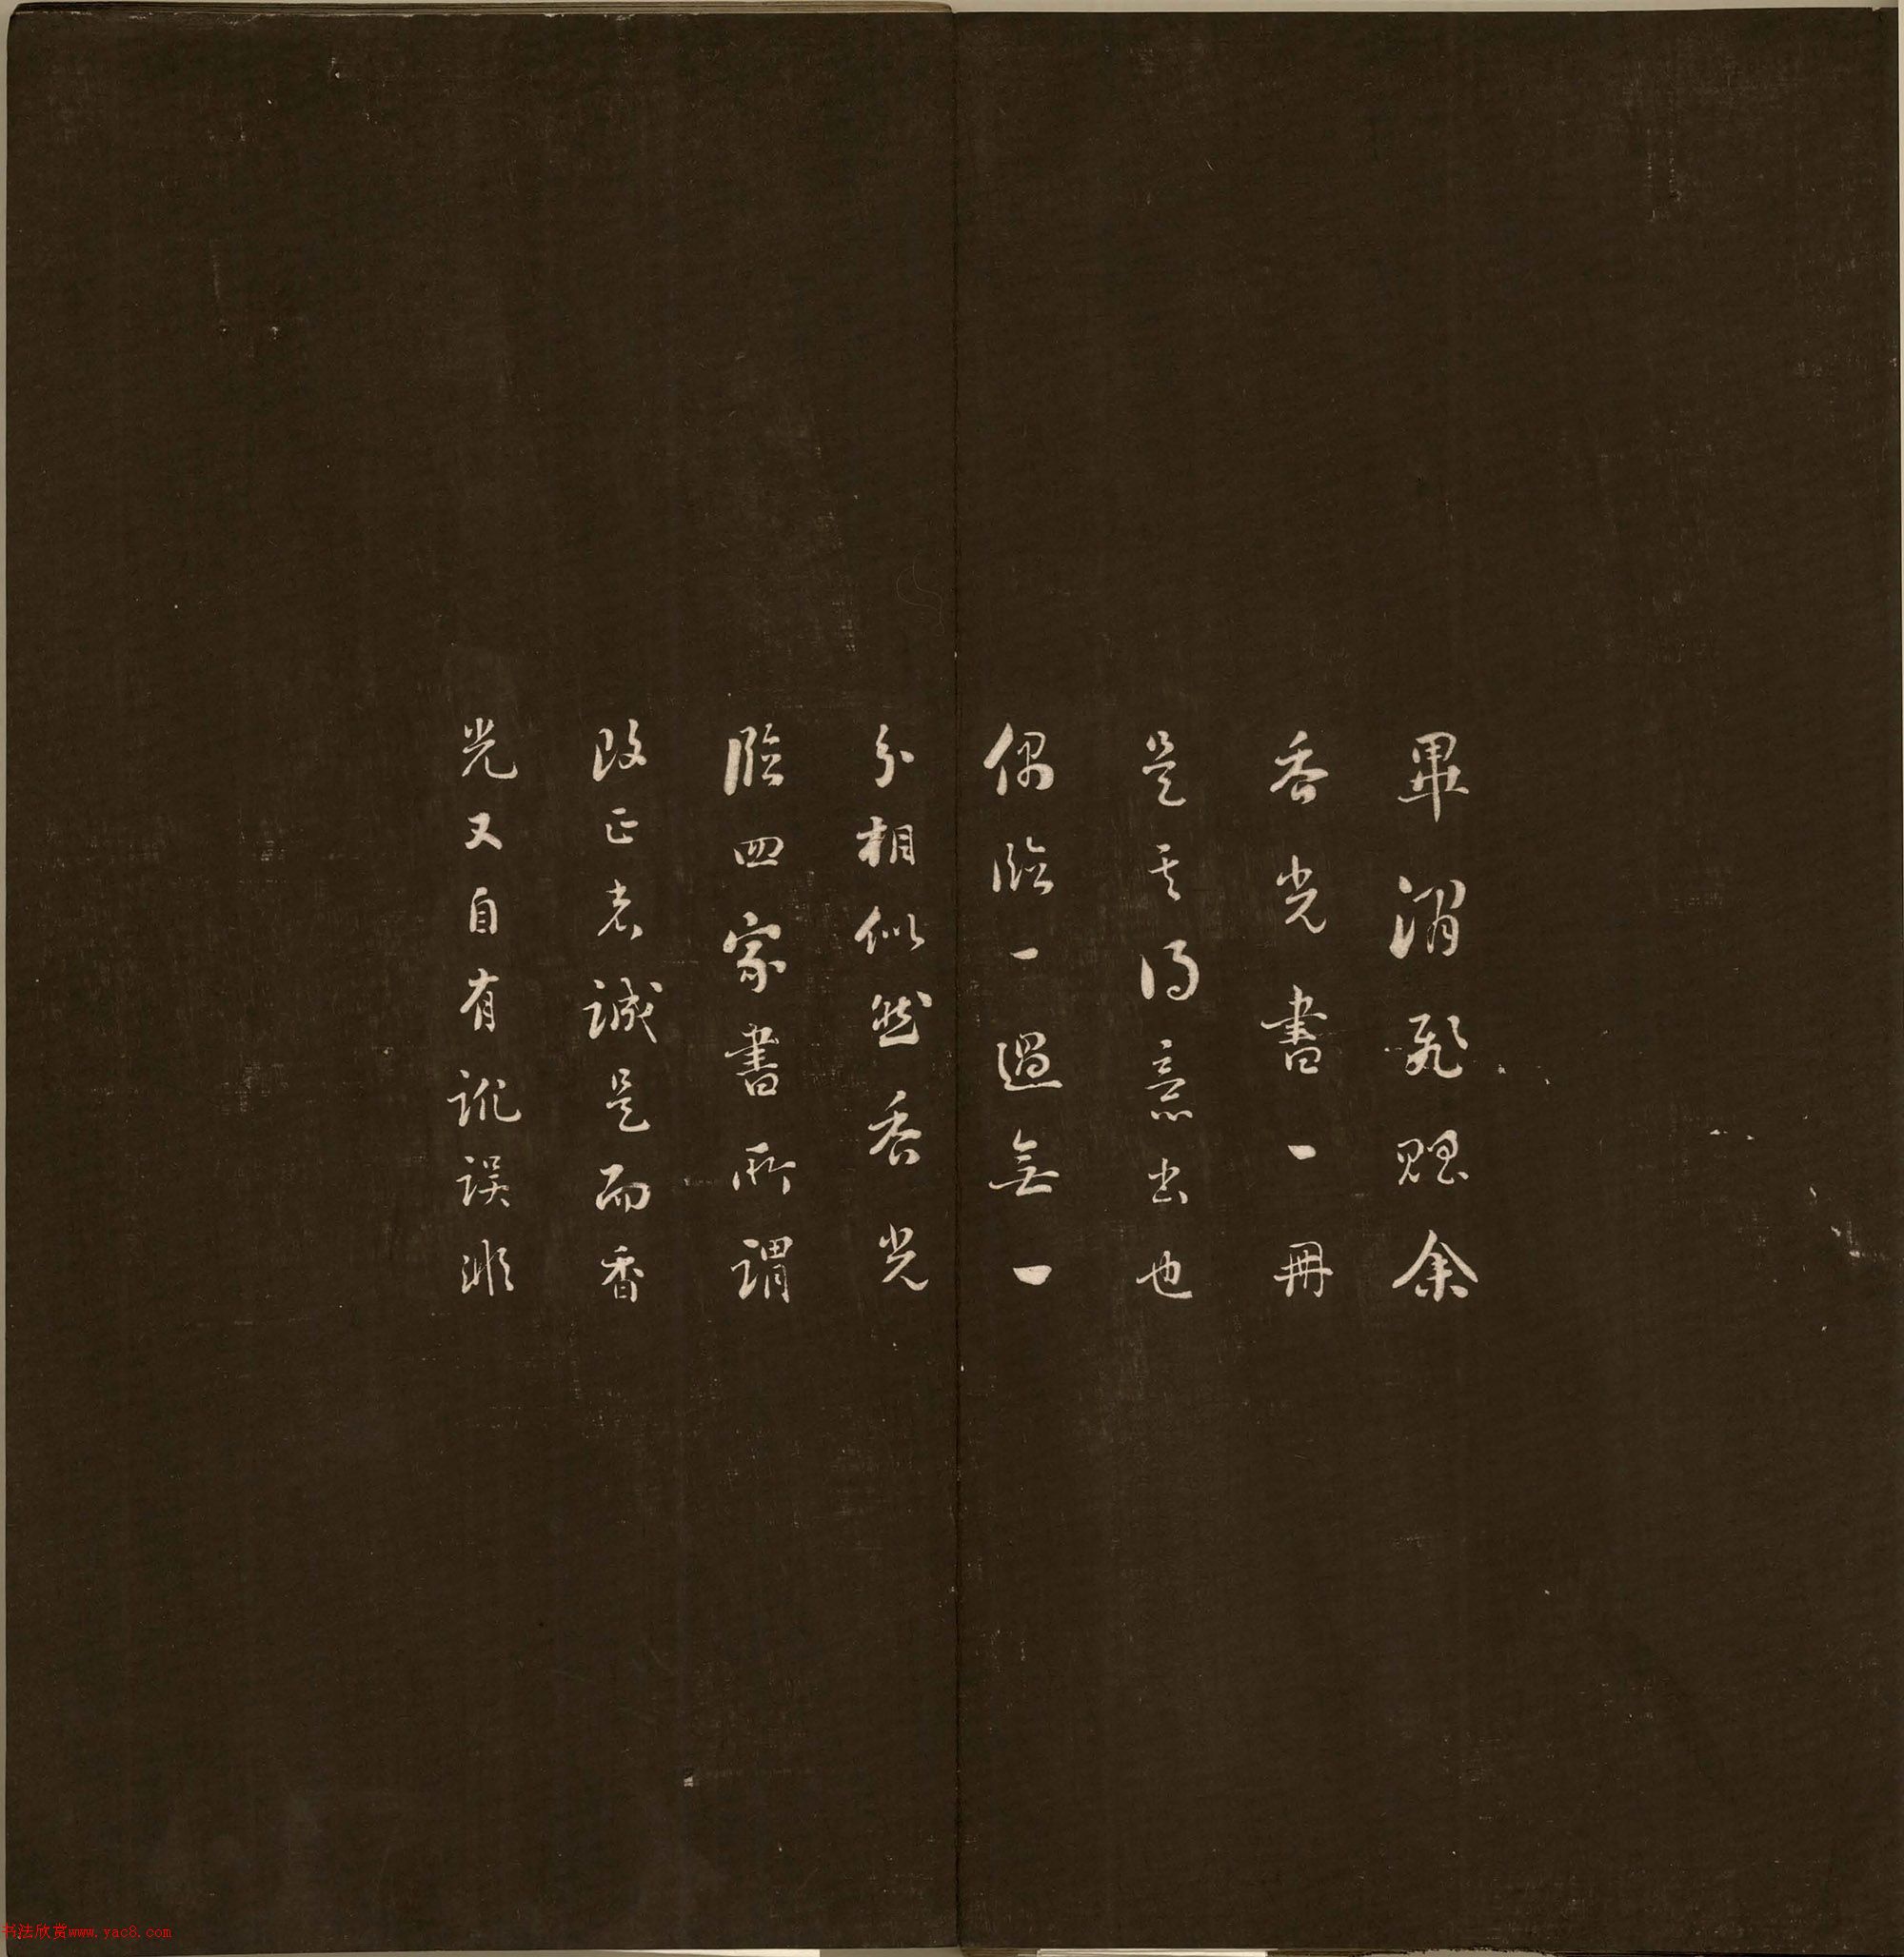 畢澗飛貽余
香光書一冊
是其得意書也
偶臨一過無一
分相似然香光
臨四家書所謂
改正者誠是而香
光又自有訛誤非
书法欣赏www.yac8.com